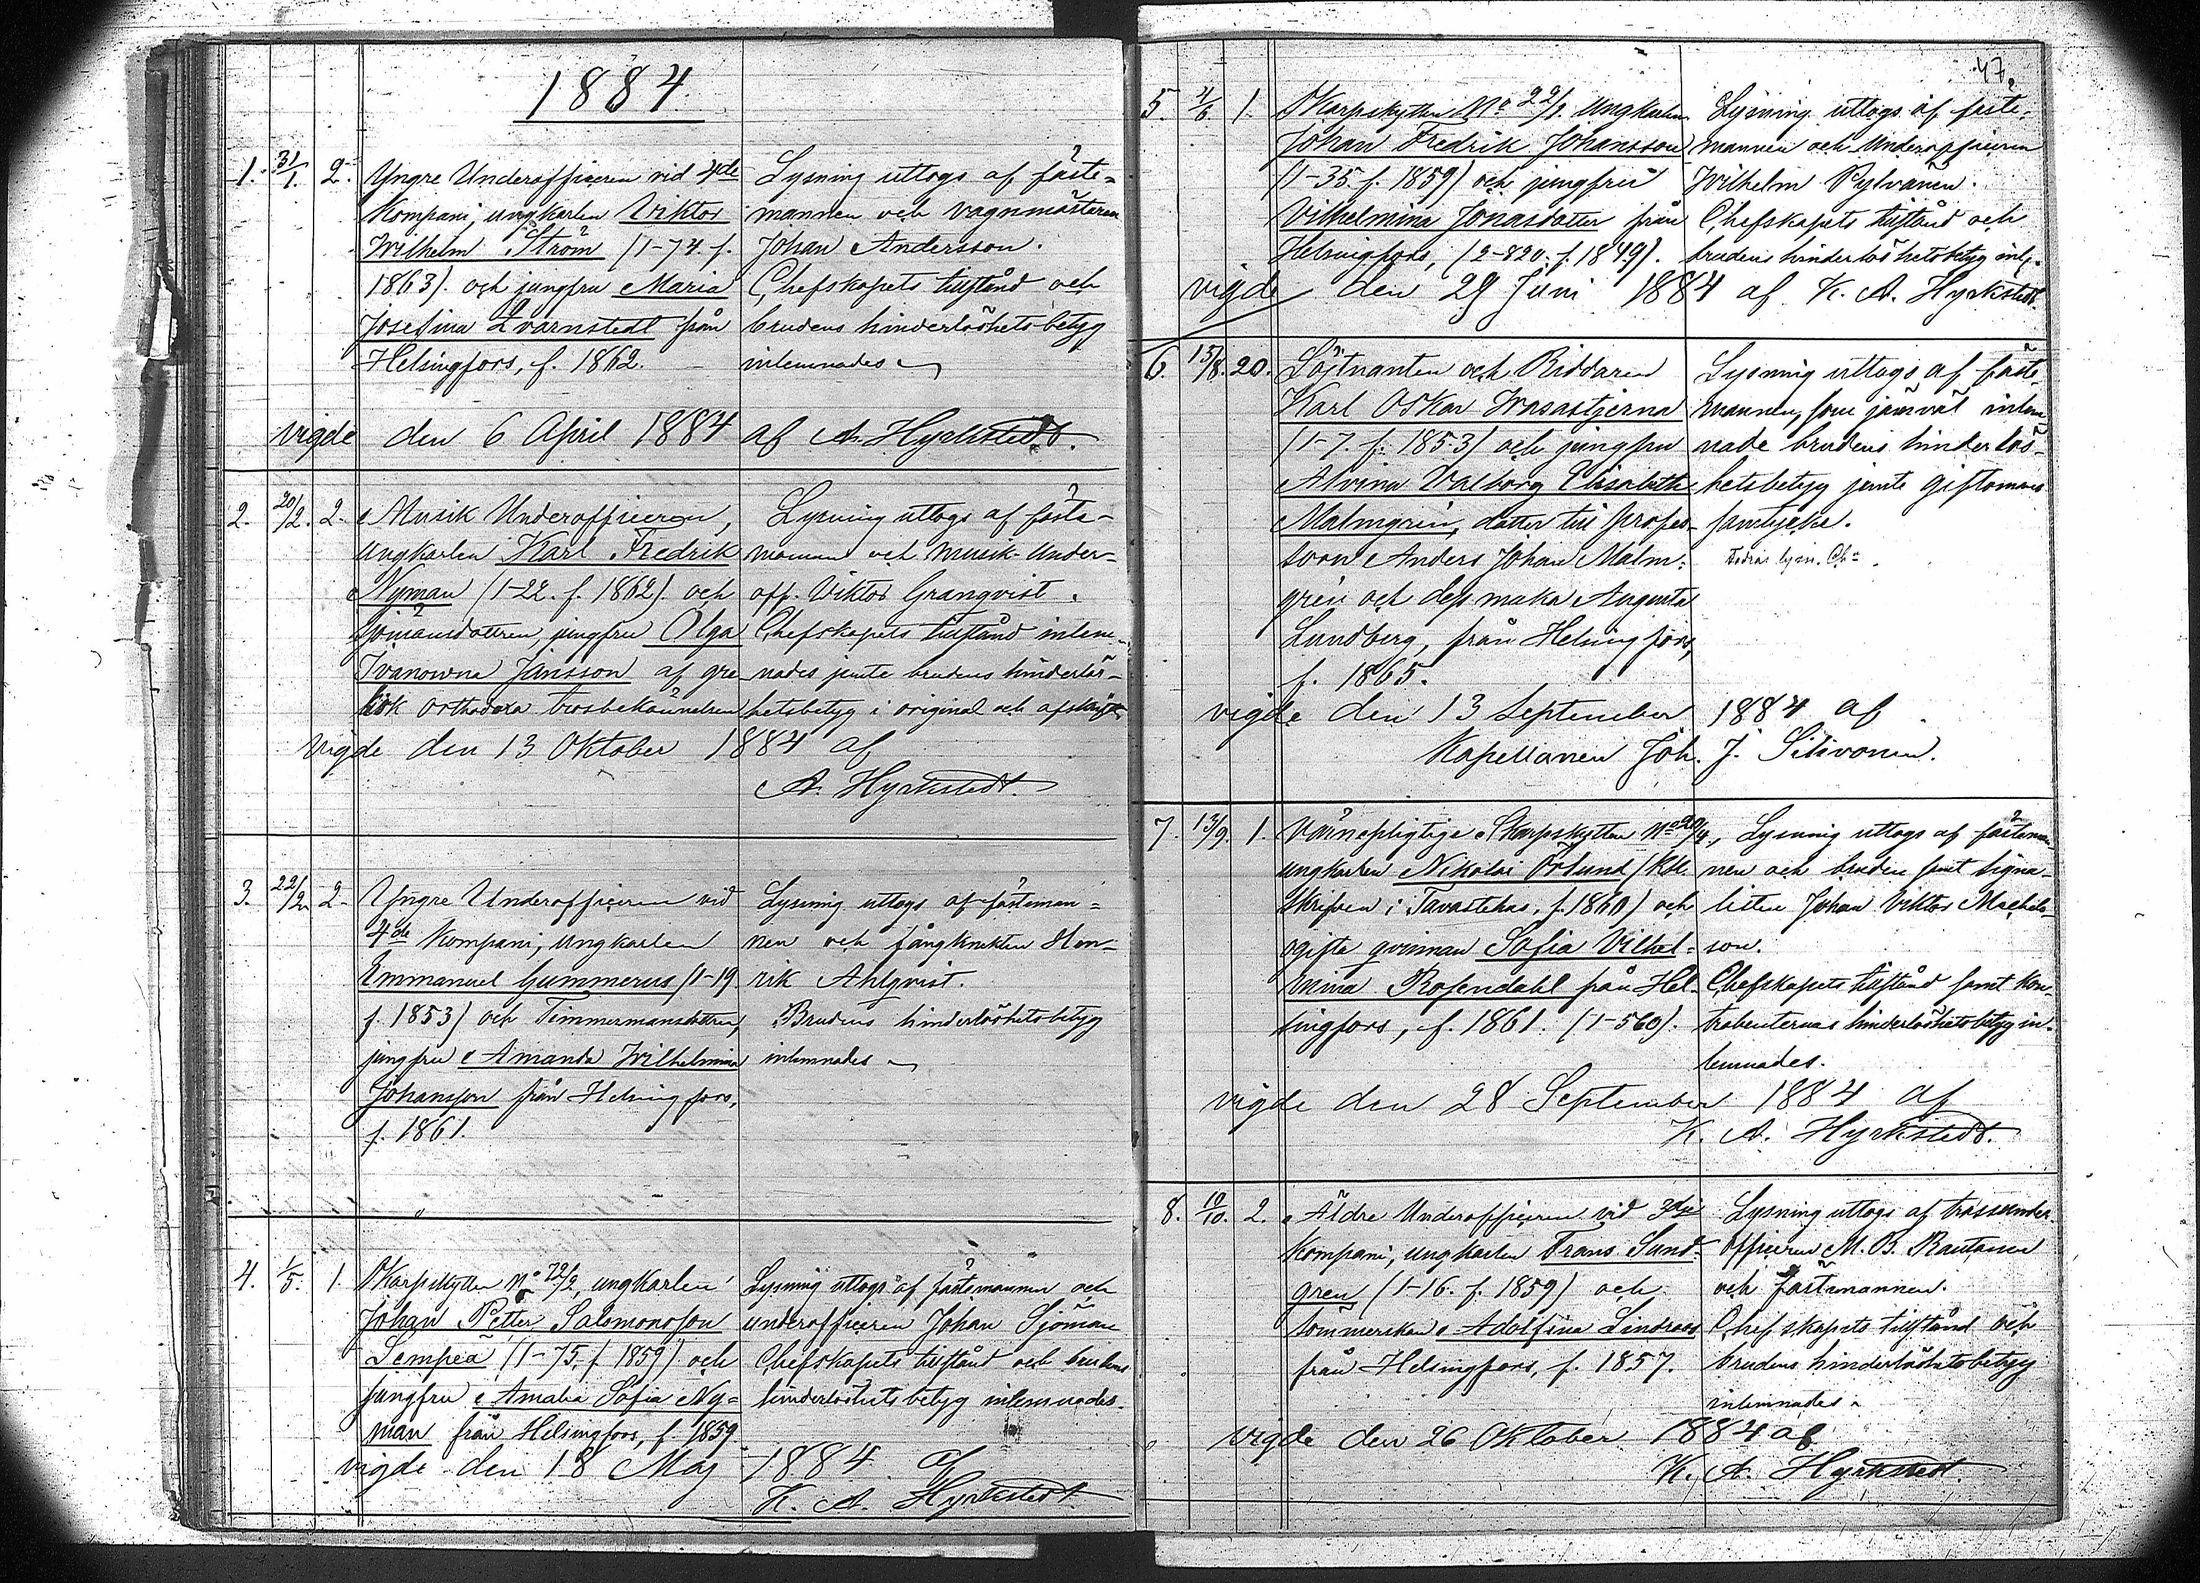 1884
1. 31/1. 2. Yngre Underofficeren vid 4de
Kompani, ungkarlen Viktor
Wilhelm Ström (1-74 f.
1863) och jungfru Maria
Josefina Qvarnstedt från
Helsingfors, f. 1862.
Lysning uttogs af fäste-
mannen och vagnmästaren
Johan Andersson.
Chefskapets tillstånd och
brudens hinderlöshetsbetyg
inlemnades
vigde den 6 April 1884 af A. Hyrkstedt.
2. 20/2. 2. Musik Underofficeren,
ungkarlen Karl Fredrik
Nyman (1-22. f. 1862) och
Sjömansdottren, jungfru Olga
Ivanowna Jansson af gre-
kisk orthodoxa trosbekännelsen
Lysning uttogs af fäste-
mannen och musik-Under-
off. Viktor Granqvist.
Chefskapets tillstånd inlem-
nades jemte brudens hinderlös-
hetsbetyg i original och afskrift
vigde den 13 Oktober 1884 af
A. Hyrkstedt.
3. 22/2. 2. Yngre Underofficeren vid
4de Kompani, ungkarlen
Emmanuel Gummerus (1-19
f. 1853) och Timmermansdottren,
jungfru Amanda Wilhelmina
Johansson från Helsingfors,
f. 1861.
Lysning uttogs af fästeman-
nen och fångknekten Hen-
rik Ahlqvist.
Brudens hinderlöshetsbetyg
inlemnades
4. 1/5. 1. Skarpskytten No 72/2, ungkarlen
Johan Petter Salomonsson
Lempeä (1-75, f. 1859) och
jungfru Amalia Sofia Ny-
man från Helsingfors, f. 1859.
Lysning uttogs af fästemannen och
underofficeren Johan Sjöman
Chefskapets tillstånd och brudens
hinderlöshetsbetyg inlemnades.
vigde den 18 Maj 1884 af
K. A. Hyrkstedt
47.
5. 4/6 1. Skarpskytten No 22/1. ungkarlen
Johan Fredrik Johansson
(1-35. f. 1859) och jungfru
Vilhelmina Jonasdotter från
Helsingfors, (2-820. f. 1849).
Lysning uttogs af fäste-
mannen och Underofficeren
Wilhelm Pylvänen.
Chefskapets tillstånd och
brudens hinderlöshetsbetyg inl.
vigde den 29 Juni 1884 af K. A. Hyrkstedt.
6. 15/8. 20. Löjtnanten och Riddaren
Karl Oskar Wasastjerna
(1-7. f. 1853) och jungfru
Alvina Valborg Elisabeth
Malmgrén, dotter till profes-
soon Anders Johan Malm-
grén och dess maka Augusta
Lundberg, från Helsingfors,
f. 1865.
Lysning uttogs af fäste-
mannen, som jämväl inlem-
nade brudens hinderlös-
hetsbetyg jemte giftomans
samtycke.
vigde den 13 September 1884 af
Kapellanen Joh. J. Silvonen.
7. 13/9. 1. Värnepligtige Skarpskytten No 20/4,
ungkarlen Nikolai Örlund (Kkl.
skrifven i Tavastehus, f. 1860) och
ogifta qvinnan Sofia Vilhel-
mina Rosendahl från Hel-
singfors, f. 1861. (1-560).
Lysning uttogs af fästeman-
nen och bruden samt signa-
listen Johan Viktor Machels-
son.
Chefskapets tillstånd samt kon-
trahenternas hinderlöshetsbetyg in-
lemnades.
vigde den 28 September 1884 af
K. A. Hyrkstedt.
8. 10/10. 2. Äldre Underofficeren vid 3dje
Kompani, ungkarlen Frans Sund-
gren (1-16. f. 1859) och
sömmerskan Adolfina Lindroos
från Helsingfors, f. 1857.
Lysning uttogs af trossunder-
officeren M. B. Rautanen
och fästemannen.
Chefskapets tillstånd och
brudens hinderlöshetsbetyg
inlemnades.
vigde den 26 Oktober 1884 af
K. A. Hyrkstedt.